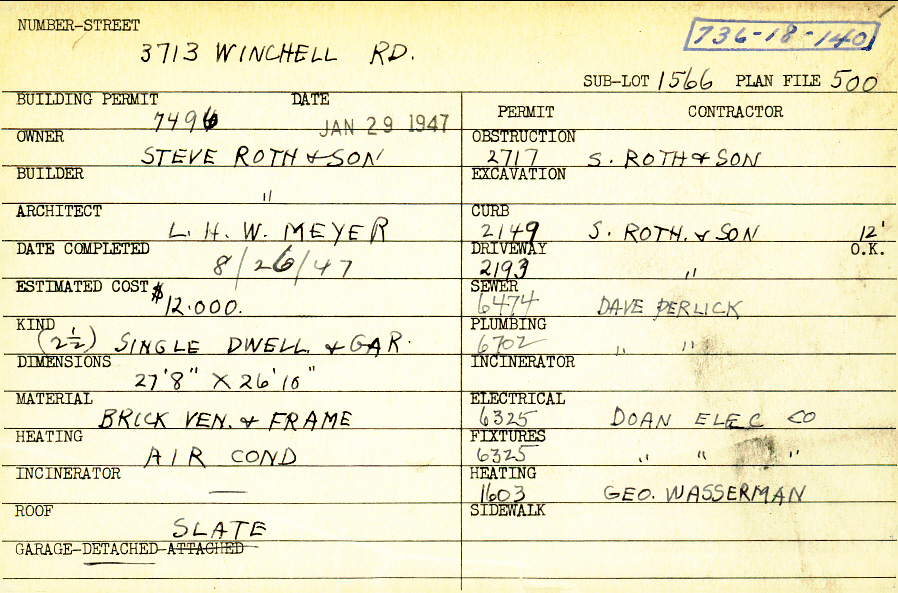 NUMBER-STREET
3713 WINCHELL RD.
736-18-140
SUB-LOT 1566 PLAN FILE 500
BUILDING PERMIT DATE
7496 JAN 29 1947
OWNER
STEVE ROTH & SON
BUILDER
"
ARCHITECT
L. H. W. MEYER
DATE COMPLETED
8/26/47
ESTIMATED COST
$12.000.
KIND
(2½) SINGLE DWELL. & GAR.
DIMENSIONS
27'8" X 26'10"
MATERIAL
BRICK VEN. & FRAME
HEATING
AIR COND
INCINERATOR
—
ROOF
SLATE
GARAGE-DETACHED-ATTACHED
PERMIT CONTRACTOR
OBSTRUCTION
2717 S. ROTH & SON
EXCAVATION
CURB
2149 S. ROTH. & SON 12'
DRIVEWAY O.K.
2193 "
SEWER
6474 DAVE PERLICK
PLUMBING
6702 " "
INCINERATOR
ELECTRICAL
6325 DOAN ELEC CO
FIXTURES
6325 " " "
HEATING
1603 GEO. WASSERMAN
SIDEWALK